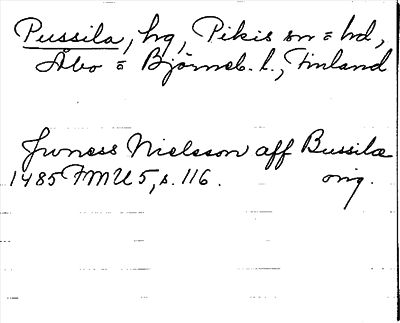 Pussila, hg, Pikis sn = hd,
Åbo = Björneb. l., Finland
Jwness Nielsson aff Bussila
1485 FMU 5, s. 116. orig.